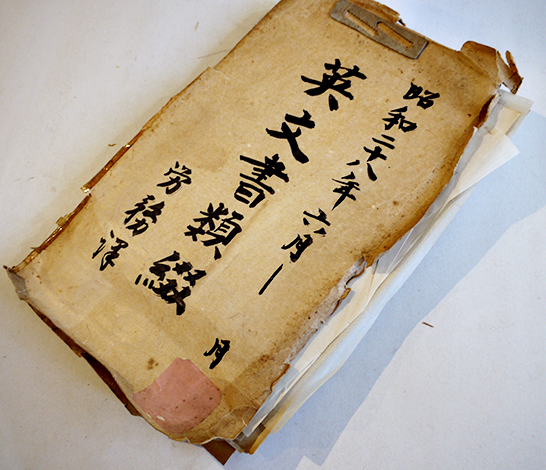 昭和二十八年六月ー 月
英文書類綴
労務